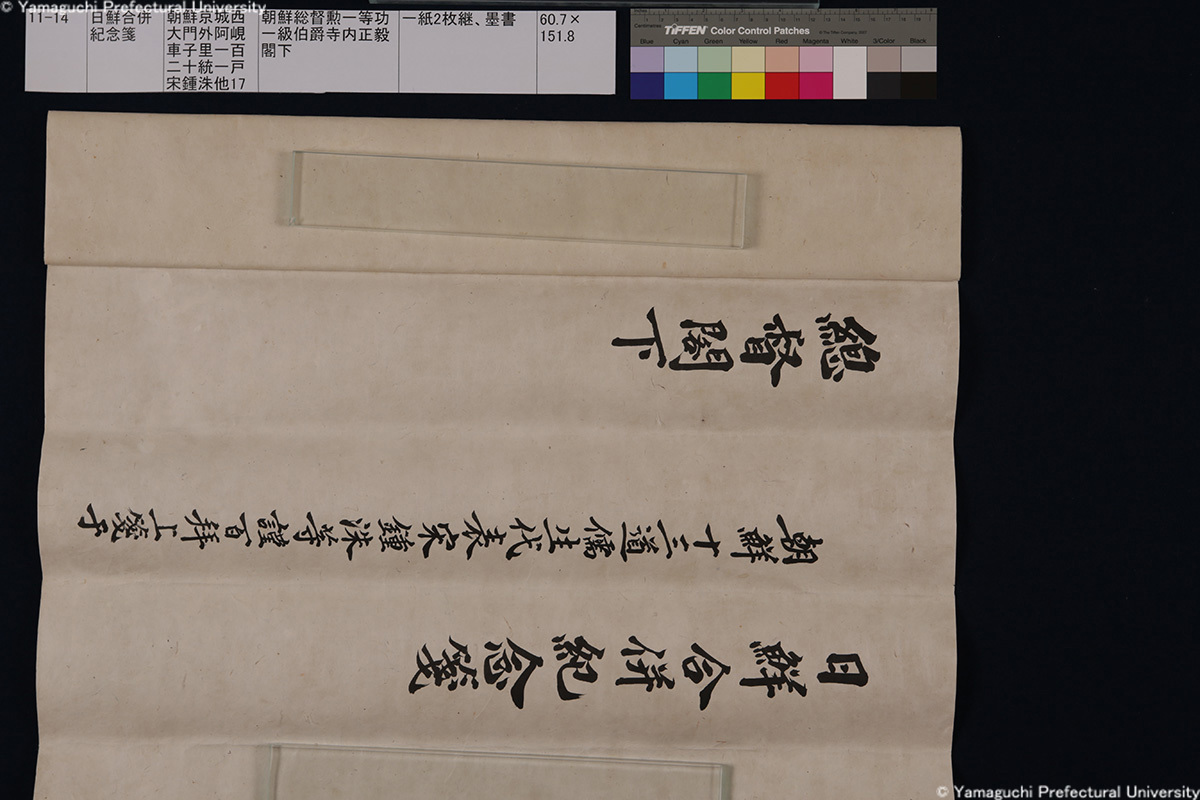 © Yamaguchi Prefectural University
11-14
日鮮合併
紀念箋
朝鮮京城西
大門外阿峴
車子里一百
二十統一戸
宋鍾洙他17
朝鮮総督勲一等功
一級伯爵寺内正毅
閣下
一紙2枚継、墨書
60.7×
151.8
Centimetres
TIFFEN Color Control Patches
Blue Cyan Green Yellow Red Magenta White 3/Color Black
總督閣下
朝鮮十三道儒生代表宋鍾洙等謹百拜上箋于
日鮮合併紀念箋
© Yamaguchi Prefectural University